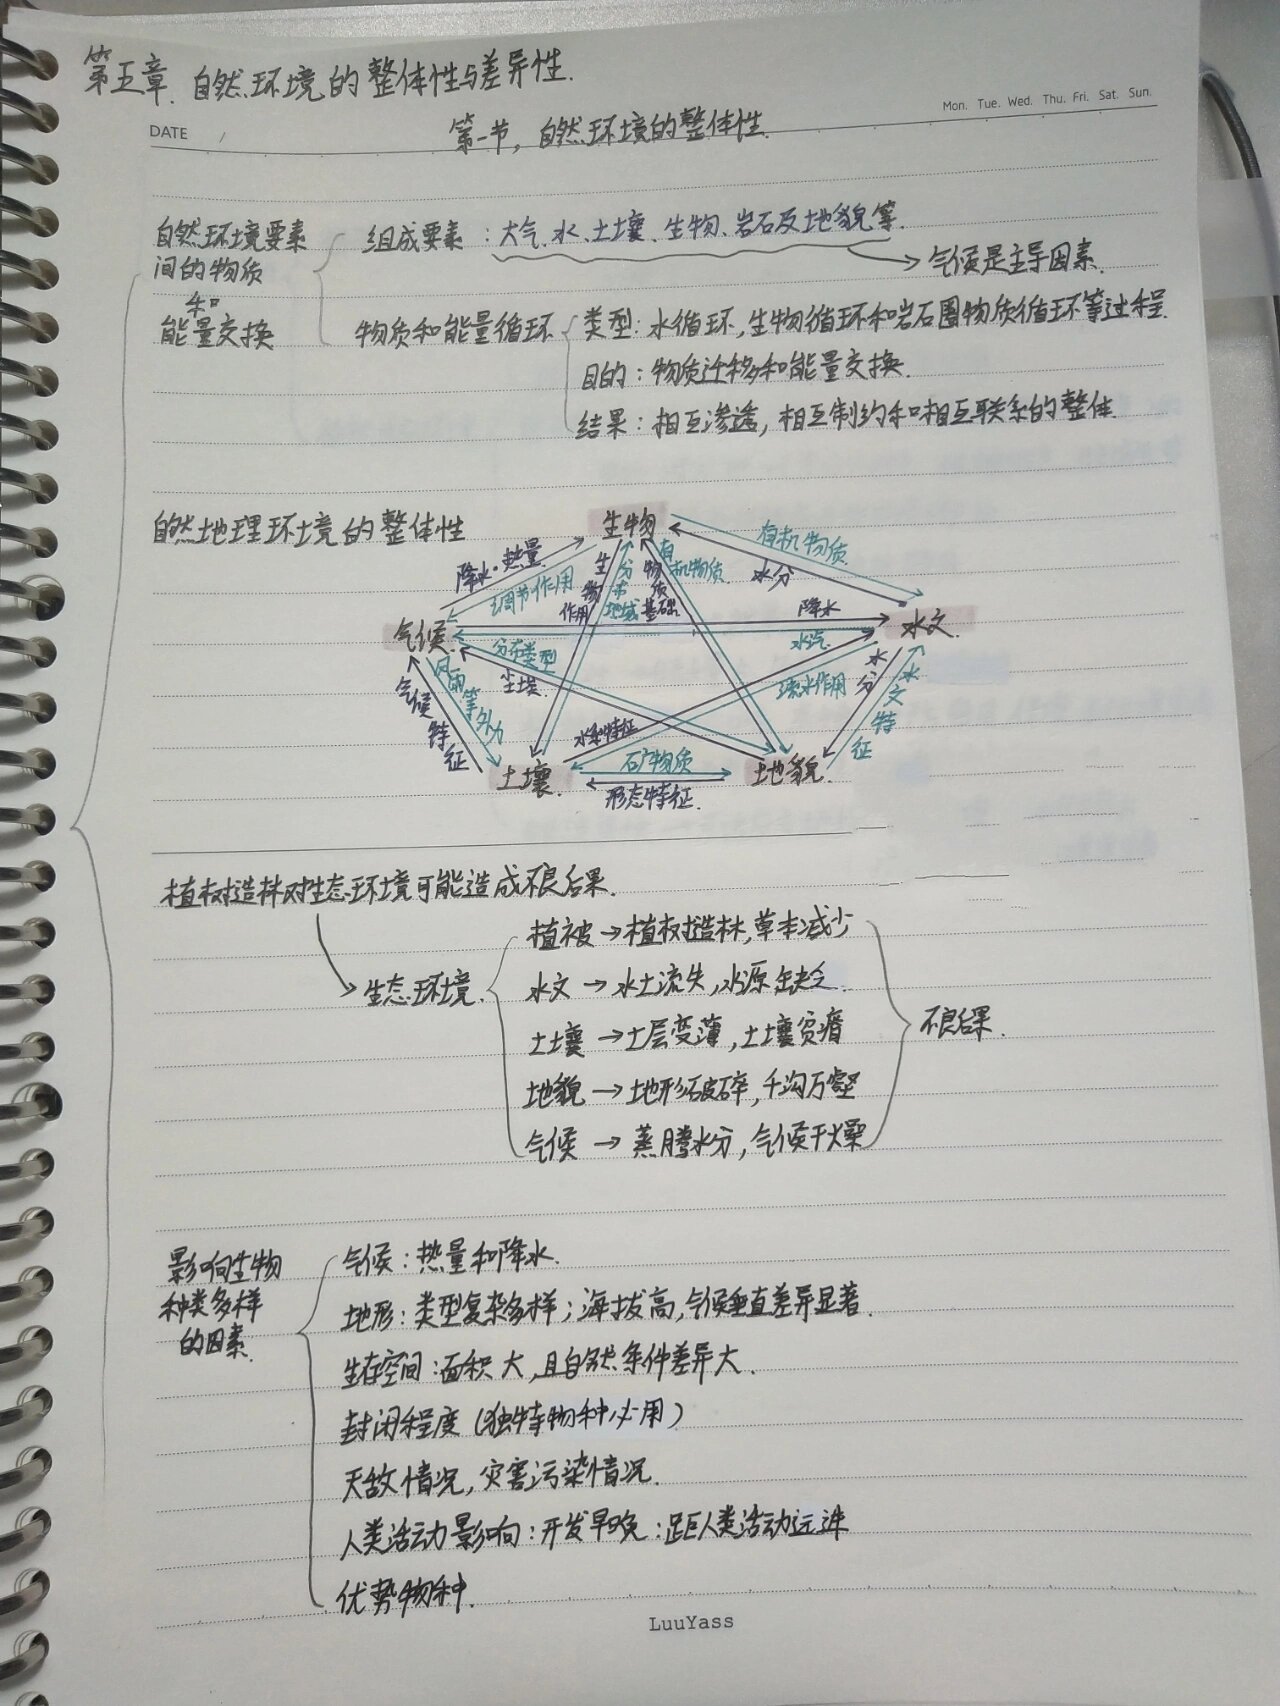 第五章.自然环境的整体性与差异性.
Mon. Tue. Wed. Thu. Fri. Sat. Sun.
DATE /
第一节,自然环境的整体性.
自然环境要素
间的物质
和
能量交换
组成要素:大气.水.土壤.生物.岩石及地貌等.
气候是主导因素.
物质和能量循环
类型:水循环,生物循环和岩石圈物质循环等过程.
目的:物质迁移和能量交换.
结果:相互渗透,相互制约和相互联系的整体.
自然地理环境的整体性
生物
有机物质
降水·热量
调节作用
生物作用
分布地域
物质基础
有机物质
水分
气候
降水
水汽
水文
分布类型
尘埃
流水作用
水分
水文特征
气候特征
风雨等外力
水和特征
土壤
矿物质
形态特征
地貌
植树造林对生态环境可能造成不良后果.
生态环境
植被→植树造林,草本减少
水文→水土流失,水源缺乏.
土壤→土层变薄,土壤贫瘠
地貌→地形破碎,千沟万壑
气候→蒸腾水分,气候干燥
不良后果.
影响生物
种类多样
的因素.
气候:热量和降水.
地形:类型复杂多样;海拔高,气候垂直差异显著.
生存空间:面积大,且自然条件差异大.
封闭程度(独特物种必用)
天敌情况,灾害污染情况.
人类活动影响:开发早晚:距人类活动远近
优势物种.
LuuYass